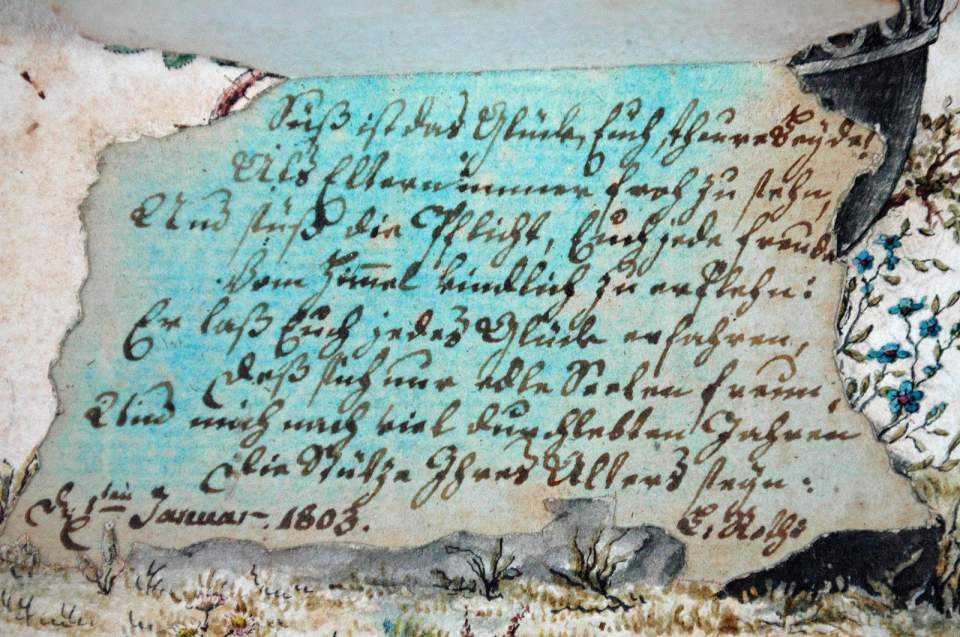 Süß ist das Glück, Euch, theure Beyde!
Als Eltern immer froh zu sehn,
Und süß die Pflicht, Euch jede Freude
Vom Him̅el kindlich zu erflehn:
Er laß Euch jedes Glück erfahren,
Deß sich nur edle Seelen freun,
Und mich nach viel durchlebten Jahren
Die Stütze Ihres Alters seyn:
D. 1ten Januar. 1803.
E. Roth: